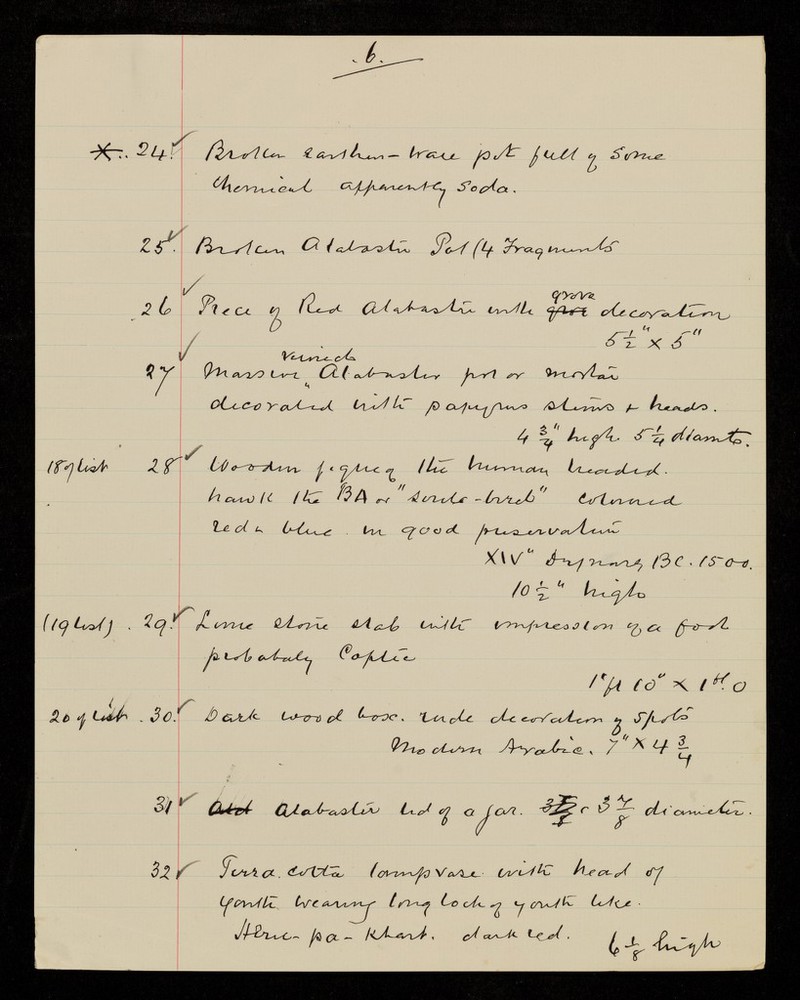 . 6 .
X. . 24. Broken earthen-ware pot full of some
chemical apparently soda.
25. Broken Alabaster Pot (4 Fragments
26 Piece of Red Alabaster with grove decoration
5 1/2" x 5"
veined
27 Massive Alabaster pot or mortar
decorated with papyrus stems & heads.
4 3/4" high 5 1/4 diamtr.
18 of list 28 Wooden figure of the human headed
hawk the "BA or "souls-bird" coloured
red & blue in good preservation
XIV" Dynasty BC. 1500.
10 1/2" high
(19 list) . 29. Lime stone slab with impression of a foot
probabaly Coptic
1 ft 10" x 1 ft. 0
20 of list . 30. Dark wood box. rude decoration of spots
Modern Arabic. 7" x 4 3/4
31 Alabaster lid of a jar. 3 7/8 diameter.
32 Terra. cotta lampvase with head of
youth wearing long lock of youth like
Heru-pa-Khart. dark red.
6 1/8 high